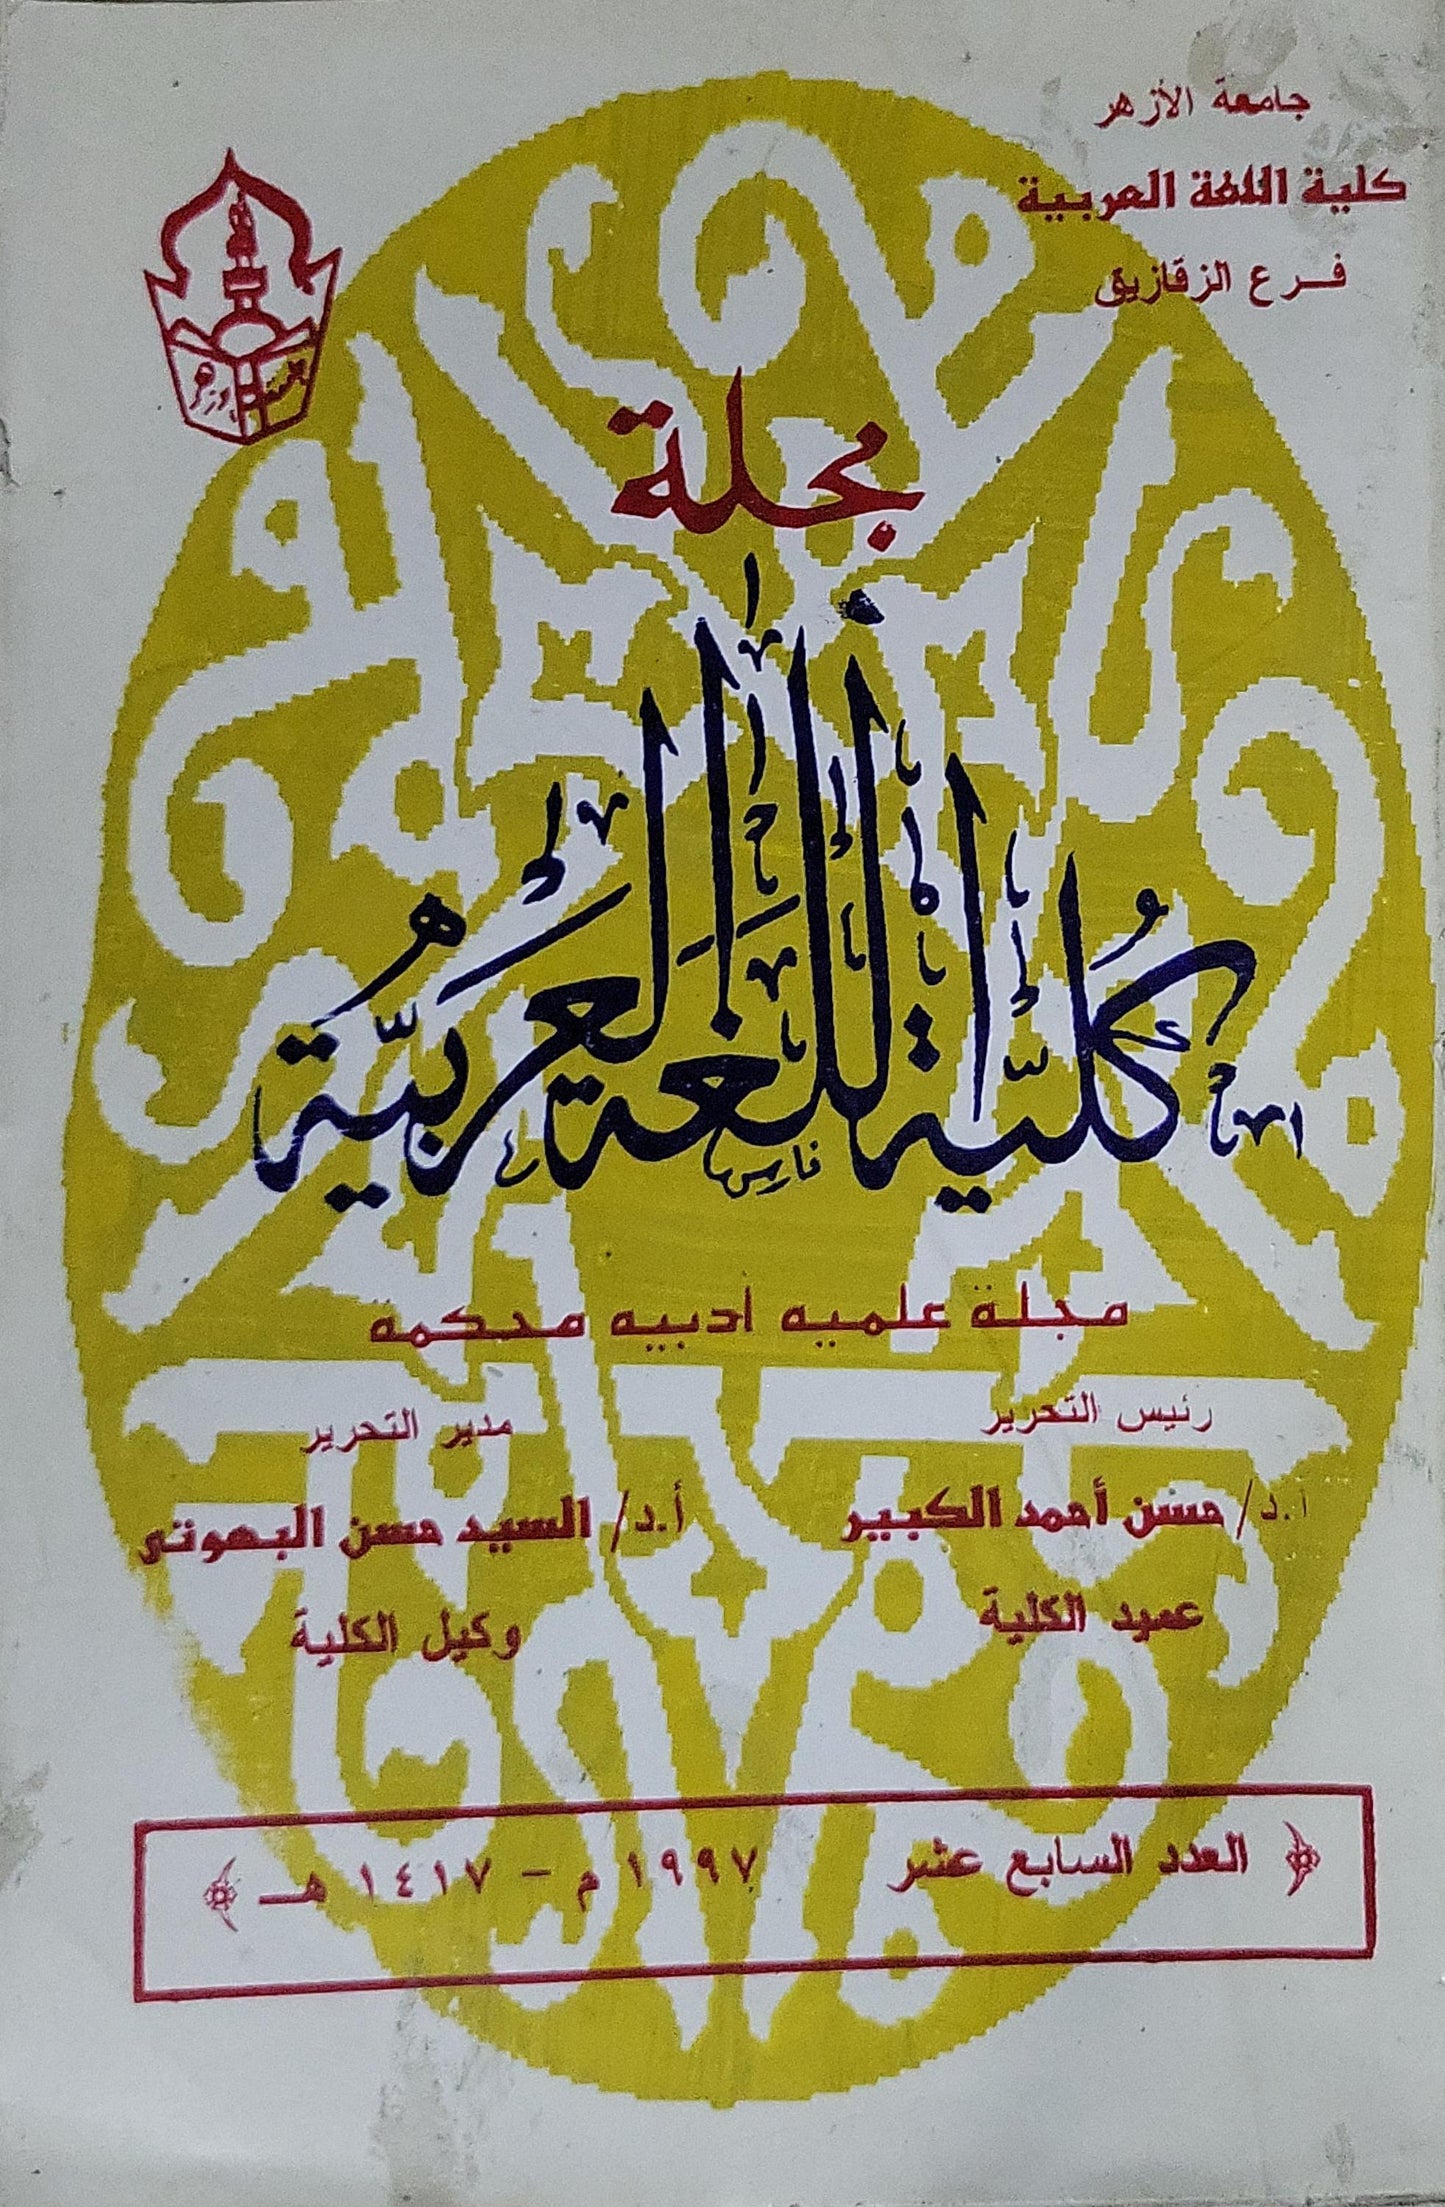 جامعة الأزهر
كلية اللغة العربية
فرع الزقازيق
مجلة
كُلِّيَّة اللُّغَة العَرَبِيَّة
فارس
مجلة علميه ادبيه محكمه
رئيس التحرير
أ.د/ حسن أحمد الكبير
عميد الكلية
مدير التحرير
أ.د/ السيد حسن البهوتى
وكيل الكلية
العدد السابع عشر ١٩٩٧ م - ١٤١٧ هـ